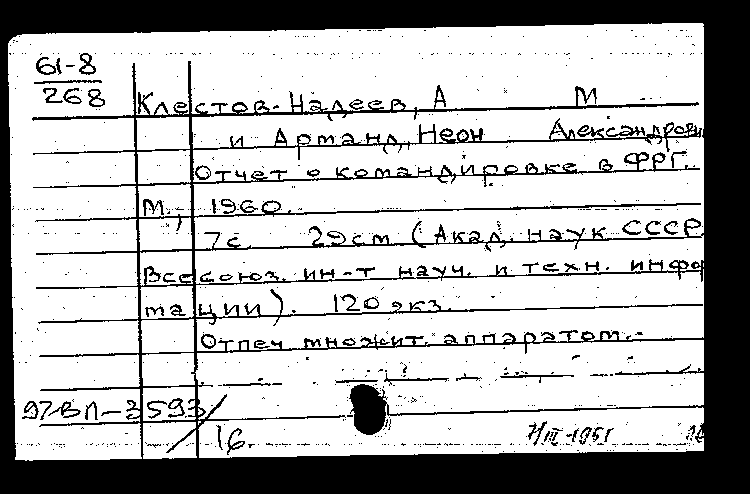 61-8
268
Клестов-Надеев, А М
и Арманд, Неон Александрови
Отчет о командировке в ФРГ.
М., 1960.
7с 29см (Акад. наук СССР.
Всесоюз. ин-т науч. и техн. инфор
мации). 120 экз.
Отпеч множит. аппаратом.-
97-ВЛ-3593
16.